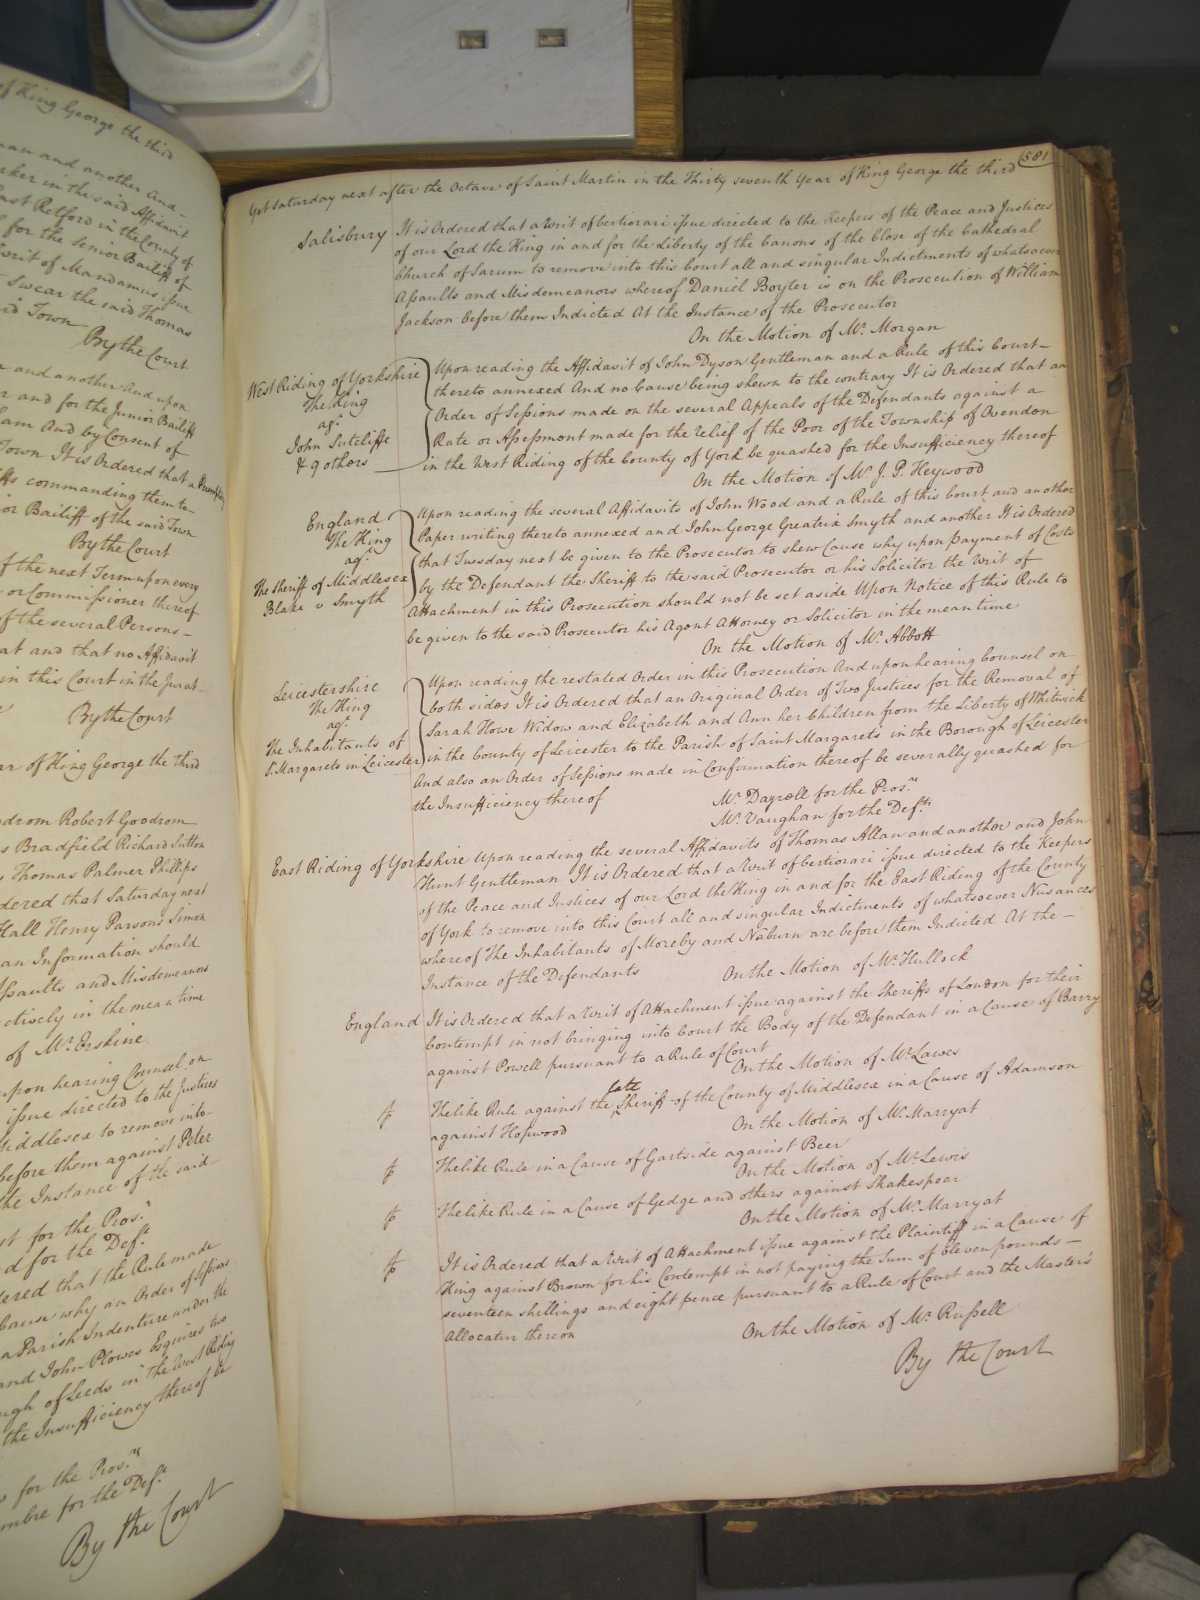 of King George the third
man and another And-
rker in the said Affidavit
ast Retford in the County of
for the Senior Bailiff of
writ of Mandamus issue
Swear the said Thomas
id Town
By the Court
and another And upon
r and for the Junior Bailiff
am And by Consent of
Town It is Ordered that a Peremptory
ffs commanding them to-
or Bailiff of the said Town
By the Court
f the next Term upon every
or Commissioner thereof
f the several Persons-
at and that no Affidavit
in this Court in the Jurat-
By the Court
ar of King George the third
drom Robert Goodrom
s Bradfield Richard Sutton
Thomas Palmer Phillips
dered that Saturday next
Hall Henry Parsons Simon
an Information should
ssaults and Misdemeanors
ctively in the mean time
of Mr. Erskine
upon hearing Counsel on
issue directed to the Justices
Middlesex to remove into-
before them against Peter
the Instance of the said-
st for the Pros.r
d for the Def.t
ered that the Rule made
Cause why an Order of Sessions
a Parish Indenture under the
and John Plowes Esquires two
ugh of Leeds in the West Riding
the Insufficiency thereof be
for the Pros.rs
mbre for the Def.t
By the Court
581
Yet Saturday next after the Octave of Saint Martin in the Thirty seventh Year of King George the third
Salisbury It is Ordered that a Writ of Certiorari issue directed to the Keepers of the Peace and Justices
of our Lord the King in and for the Liberty of the Canons of the Close of the Cathedral
Church of Sarum to remove into this Court all and singular Indictments of whatsoever
Assaults and Misdemeanors whereof Daniel Boyter is on the Prosecution of William
Jackson before them Indicted At the Instance of the Prosecutor
On the Motion of Mr. Morgan
West Riding of Yorkshire
The King
agt.
John Sutcliffe
& 9 others
Upon reading the Affidavit of John Dyson Gentleman and a Rule of this Court-
thereto annexed And no Cause being shewn to the contrary It is Ordered that an
Order of Sessions made on the several Appeals of the Defendants against a
Rate or Assessment made for the relief of the Poor of the Township of Ovendon
in the West Riding of the County of York be quashed for the Insufficiency thereof
On the Motion of Mr. J. P. Heywood
England
The King
agt.
The Sheriff of Middlesex
Blake v Smyth
Upon reading the several Affidavits of John Wood and a Rule of this Court and another
Paper writing thereto annexed and John George Greatrix Smyth and another It is Ordered
that Tuesday next be given to the Prosecutor to shew Cause why upon payment of Costs
by the Defendant the Sheriff to the said Prosecutor or his Solicitor the Writ of
Attachment in this Prosecution should not be set aside Upon Notice of this Rule to
be given to the said Prosecutor his Agent Attorney or Solicitor in the mean time
On the Motion of Mr. Abbott
Leicestershire
The King
agt.
The Inhabitants of
St. Margarets in Leicester
Upon reading the restated Order in this Prosecution And upon hearing Counsel on
both sides It is Ordered that an Original Order of Two Justices for the Removal of
Sarah Howe Widow and Elizabeth and Ann her Children from the Liberty of Whitwick
in the County of Leicester to the Parish of Saint Margarets in the Borough of Leicester
And also an Order of Sessions made in Confirmation thereof be severally quashed for
the Insufficiency thereof
Mr. Dayrell for the Pros.rs
Mr. Vaughan for the Def.ts
East Riding of Yorkshire Upon reading the several Affidavits of Thomas Allan and another and John
Hunt Gentleman It is Ordered that a Writ of Certiorari issue directed to the Keepers
of the Peace and Justices of our Lord the King in and for the East Riding of the County
of York to remove into this Court all and singular Indictments of whatsoever Nusances
whereof The Inhabitants of Moreby and Naburn are before them Indicted At the-
Instance of the Defendants
On the Motion of Mr. Hullock
England It is Ordered that a Writ of Attachment issue against the Sheriffs of London for their
Contempt in not bringing into Court the Body of the Defendant in a Cause of Barry
against Powell pursuant to a Rule of Court
On the Motion of Mr. Lawes
The like Rule against the late Sheriff of the County of Middlesex in a Cause of Adamson
against Hopwood
On the Motion of Mr. Marryat
The like Rule in a Cause of Gartside against Beer
On the Motion of Mr. Lewis
The like Rule in a Cause of Gedge and others against Shakespear
On the Motion of Mr. Marryat
It is Ordered that a Writ of Attachment issue against the Plaintiff in a Cause of
King against Brown for his Contempt in not paying the Sum of Eleven pounds-
seventeen shillings and eight pence pursuant to a Rule of Court and the Master's
Allocatur thereon
On the Motion of Mr. Russell
By the Court